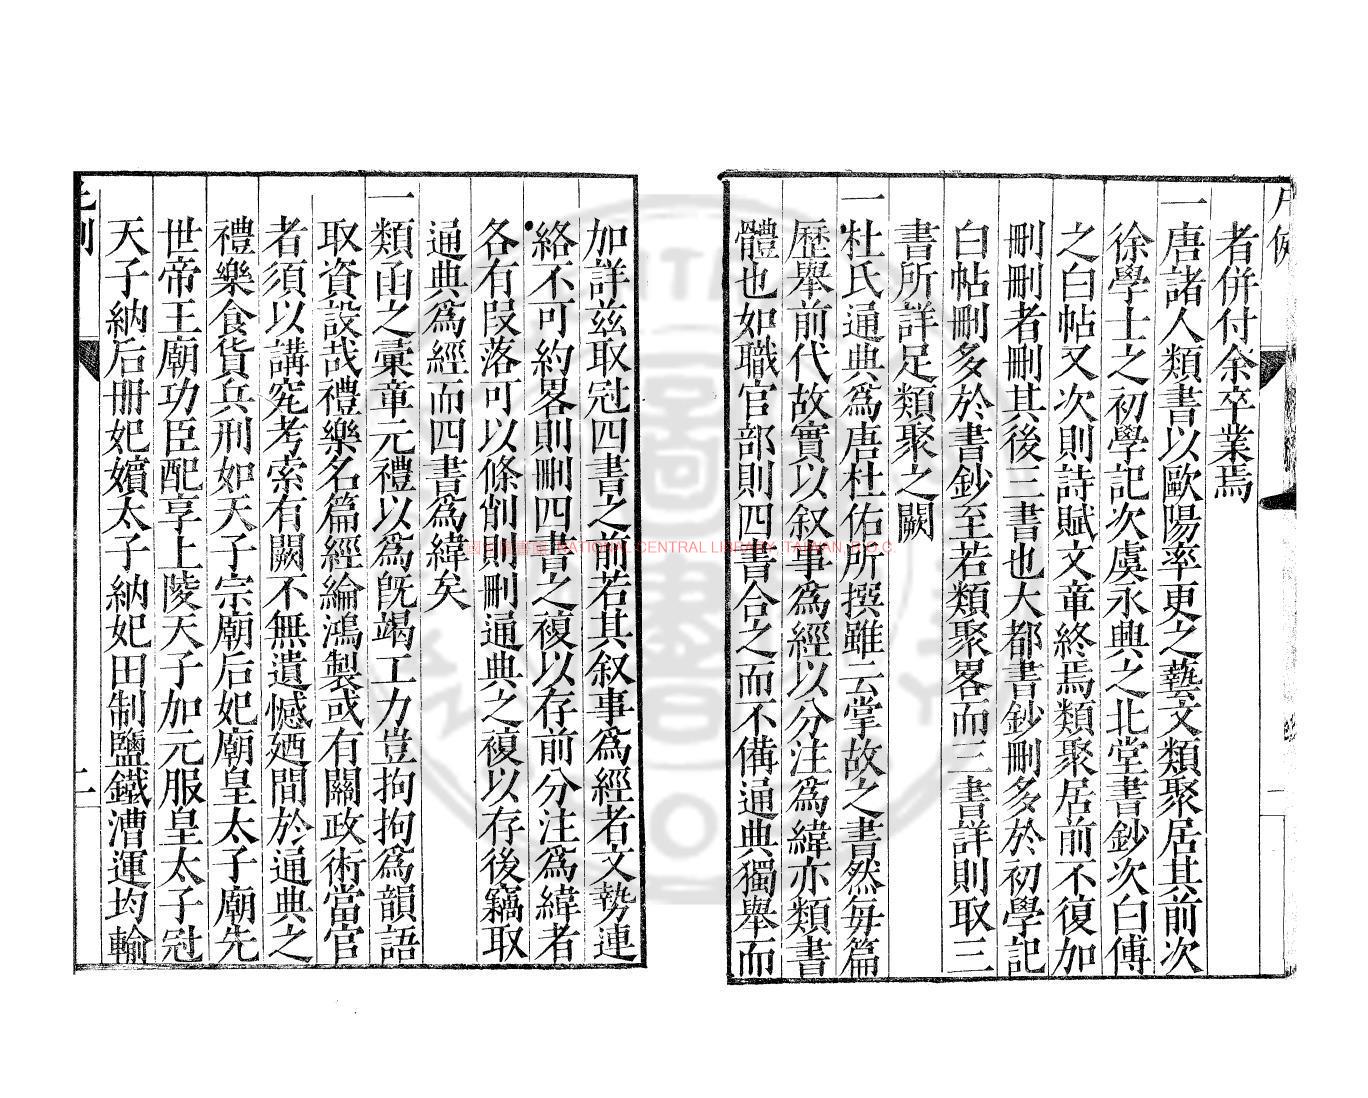 者併付余卒業焉
一唐諸人類書以歐陽率更之藝文類聚居其前次
徐學士之初學記次虞永興之北堂書鈔次白傅
之白帖又次則詩賦文章終焉類聚居前不復加
刪刪者刪其後三書也大都書鈔刪多於初學記
白帖刪多於書鈔至若類聚畧而三書詳則取三
書所詳足類聚之闕
一杜氏通典爲唐杜佑所撰雖云掌故之書然每篇
歷舉前代故實以叙事爲經以分注爲緯亦類書
體也如職官部則四書合之而不備通典獨舉而
加詳茲取冠四書之前若其叙事爲經者文勢連
絡不可約畧則刪四書之複以存前分注爲緯者
各有段落可以條削則刪通典之複以存後竊取
通典爲經而四書爲緯矣
一類函之彚章元禮以爲旣竭工力豈拘拘爲韻語
取資設哉禮樂名篇經綸鴻製或有關政術當官
者須以講究考索有闕不無遺憾廼間於通典之
禮樂食貨兵刑如天子宗廟后妃廟皇太子廟先
世帝王廟功臣配享上陵天子加元服皇太子冠
天子納后冊妃嬪太子納妃田制鹽鐵漕運均輸
二
國立中央圖書館 NATIONAL CENTRAL LIBRARY, TAIWAN, R.O.C.